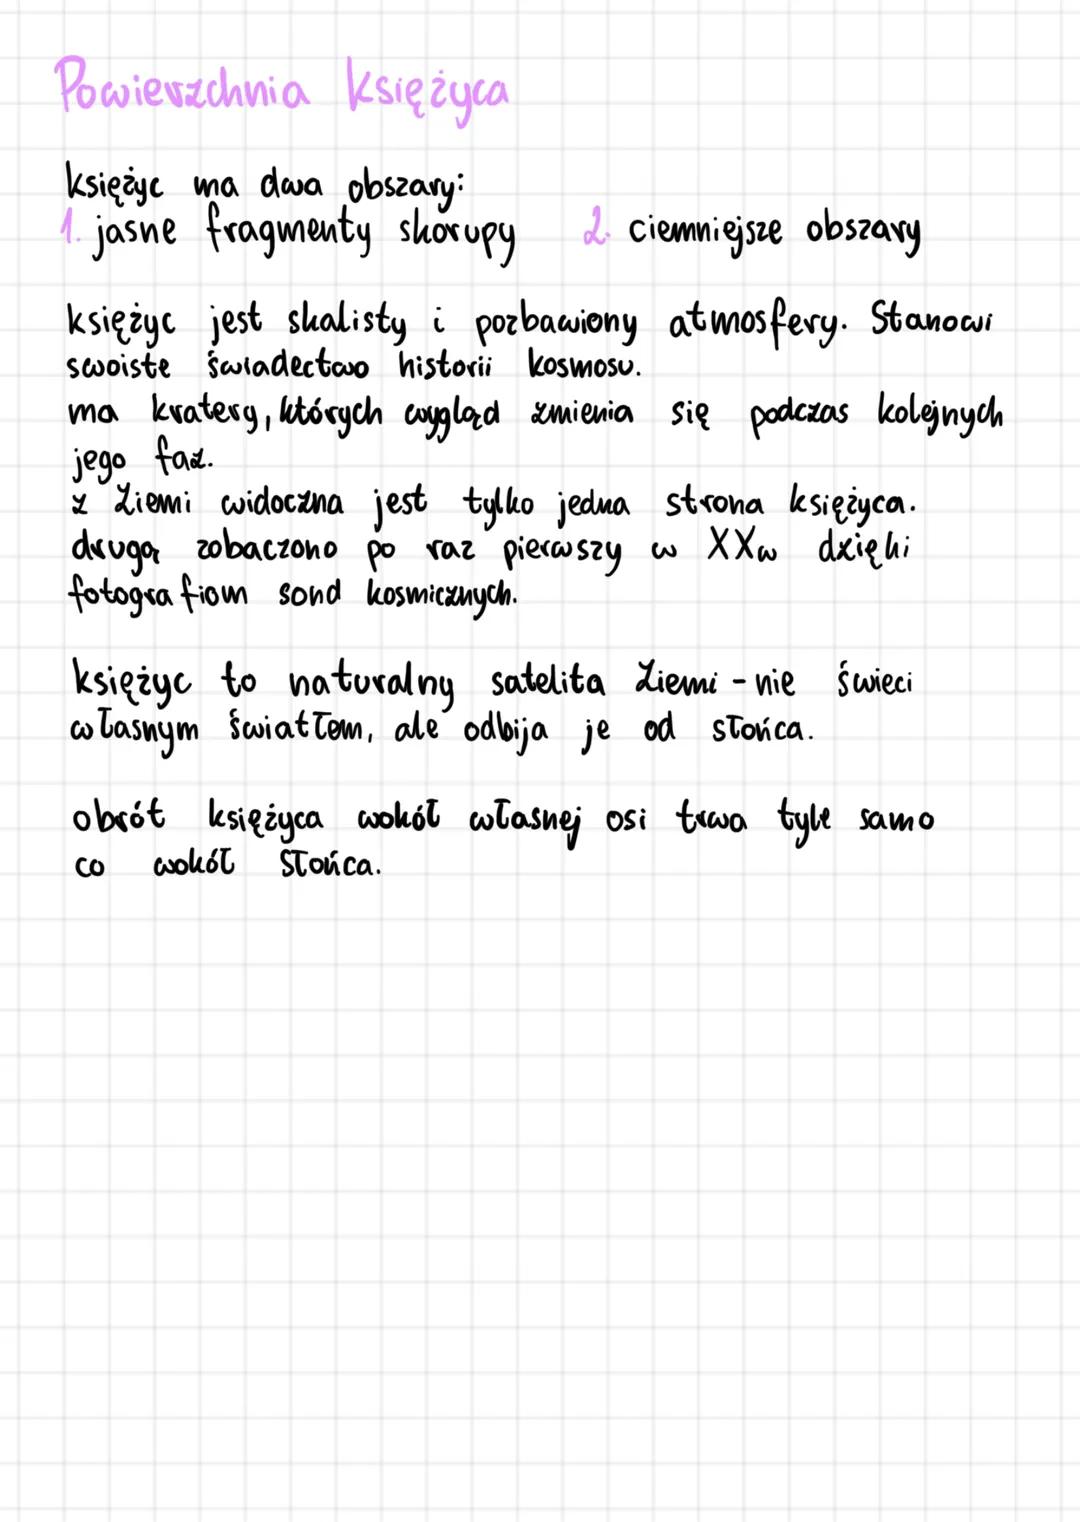 Powierzchnia księżyca
księżyc ma dwa obszary:
1. jasne fragmenty skorupy 2. ciemniejsze obszary
księżyc jest skalisty i pozbawiony atmosfery. Stanowi
swoiste świadectwo historii kosmosu.
ma kratery, których wygląd zmienia się podczas kolejnych
jego faz.
z Ziemi widoczna jest tylko jedna strona księżyca.
drugą zobaczono po raz pierwszy w XXw dzięki
fotografiom sond kosmicznych.
księżyc to naturalny satelita Ziemi - nie świeci
własnym światłem, ale odbija je od słońca.
obrót księżyca wokół własnej osi trwa tyle samo
co wokół Słońca.